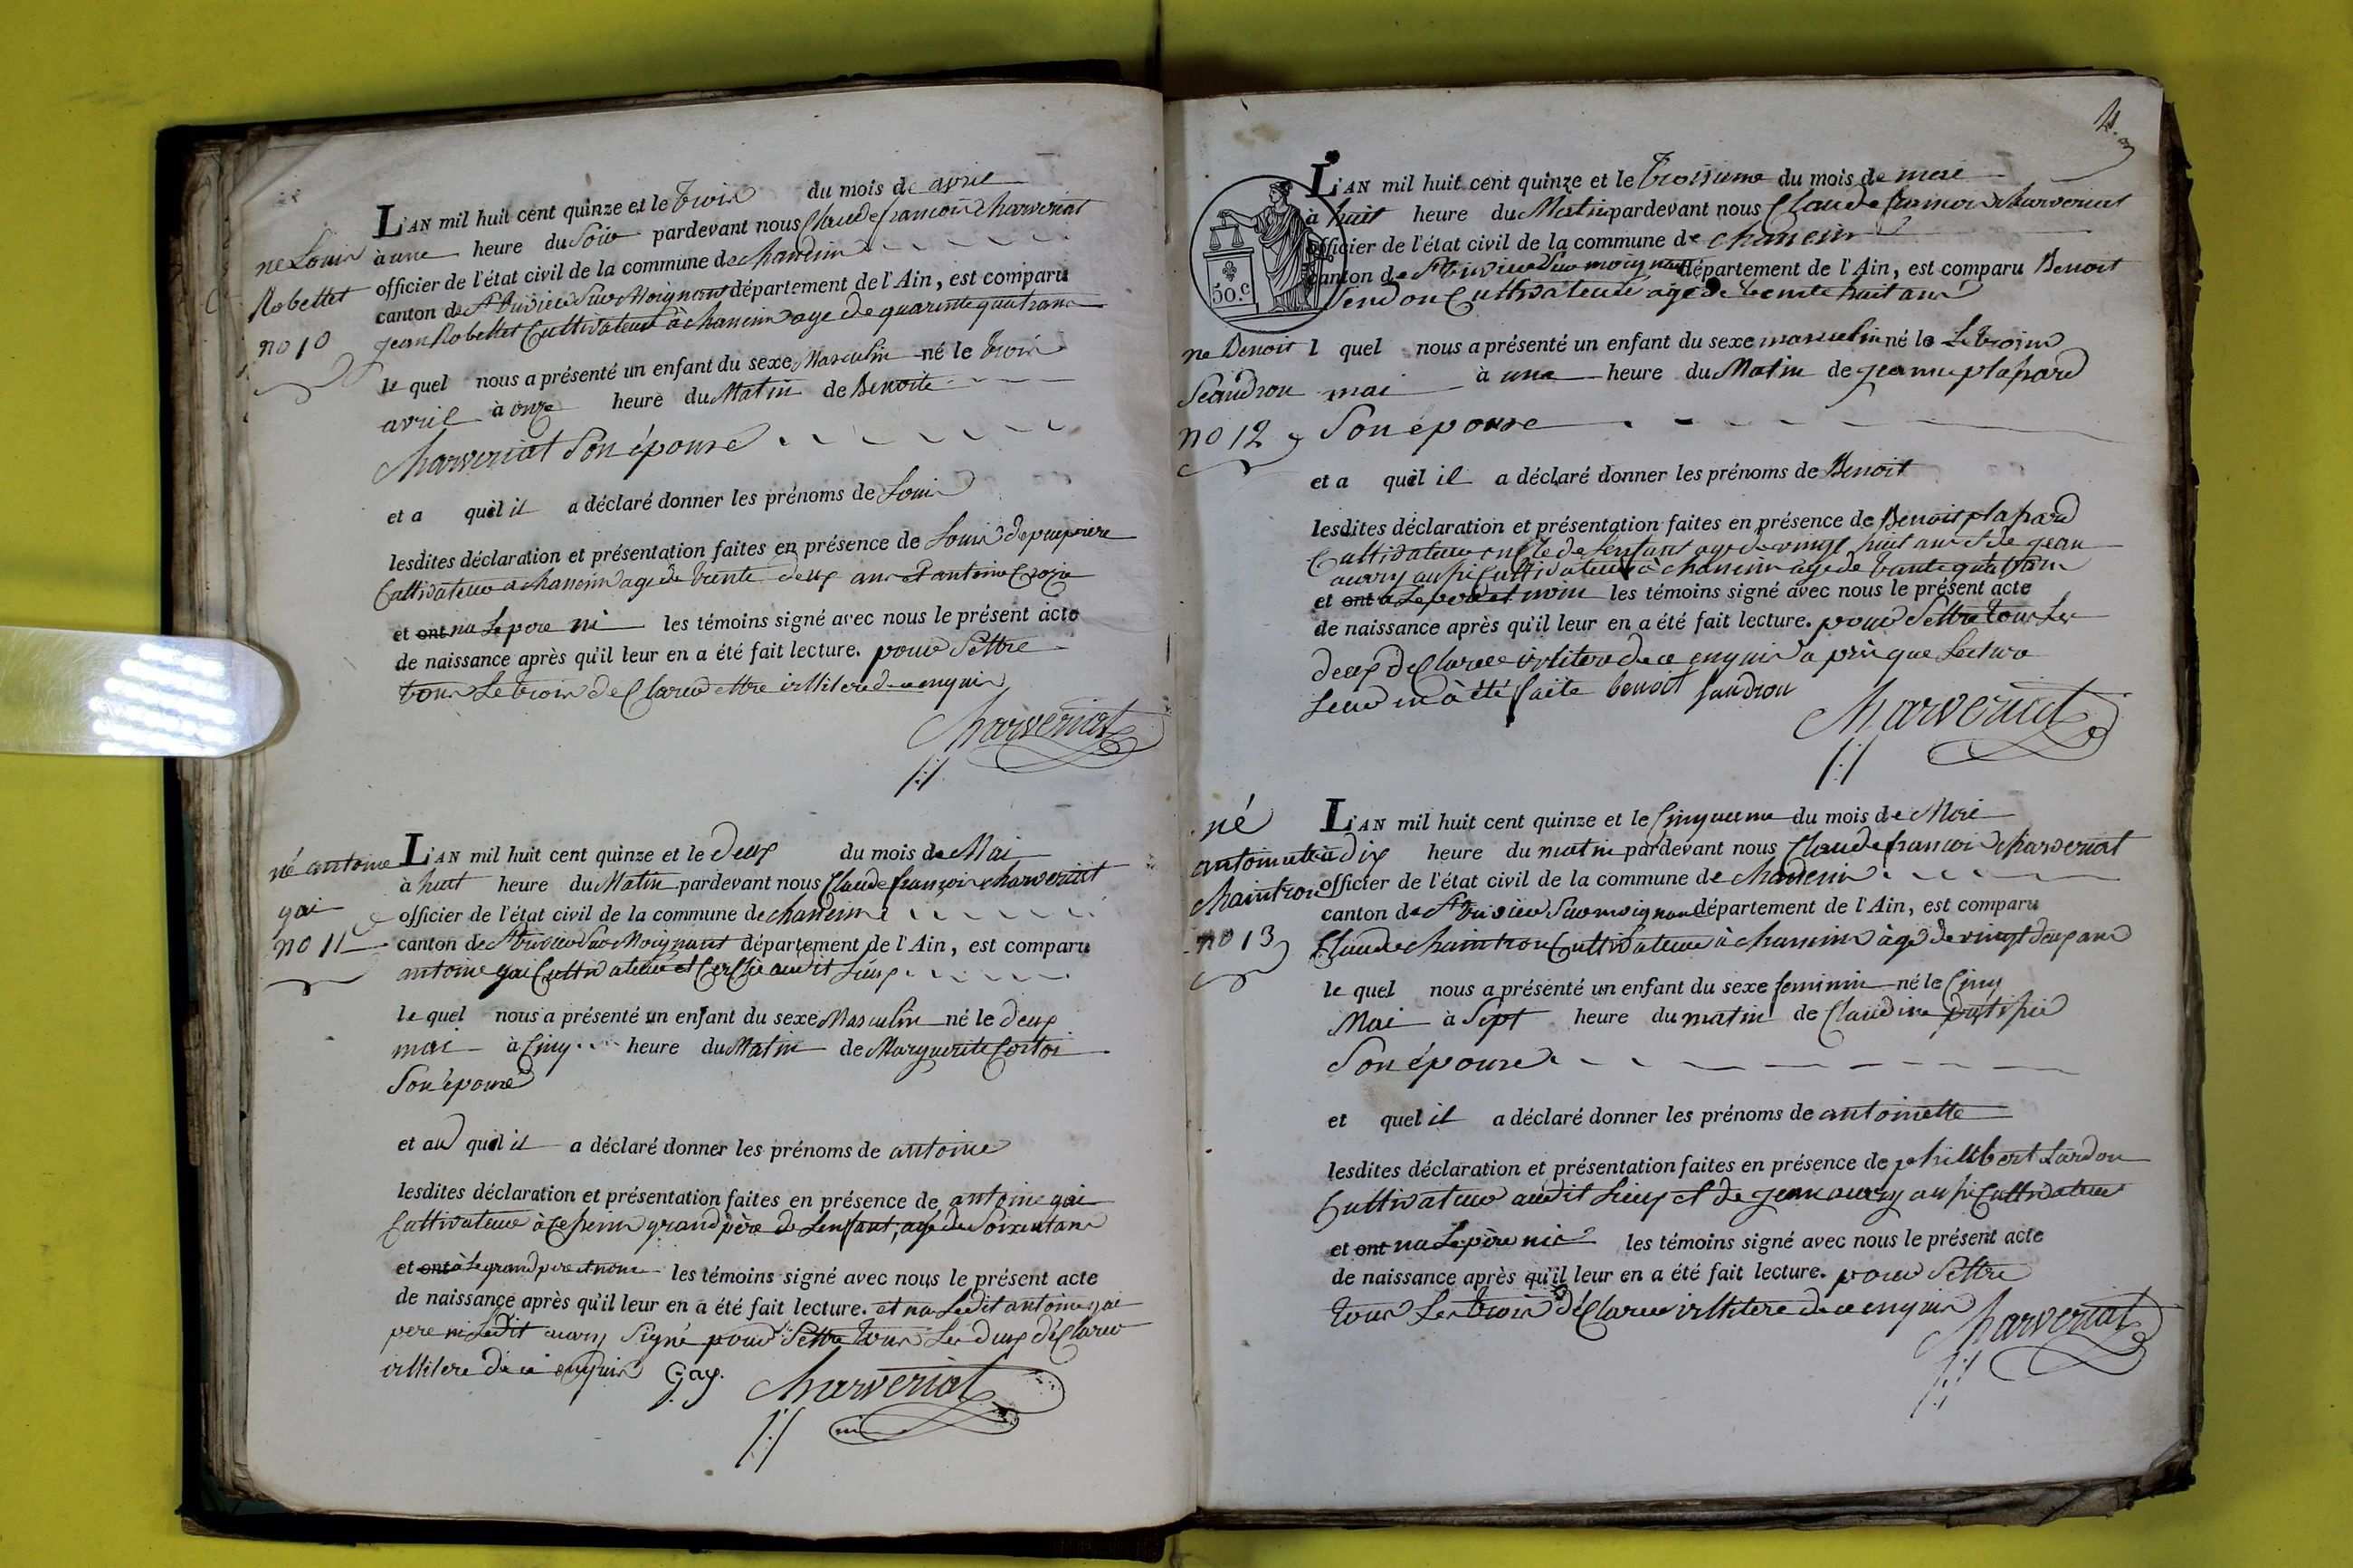 né Louis
Robellet
no 10
L'AN mil huit cent quinze et le trois du mois de avril
à une heure du Soir pardevant nous Claude françois Charveriat
officier de l'état civil de la commune de chaneins
canton de St trivier Sur Moignans département de l'Ain, est comparu
jean Robellet Cultivateur à chaneins age de quarente quatrans
le quel nous a présenté un enfant du sexe Masculin né le trois
avril à onze heure du Matin de Benoite
Charveriat Son épouse
et a quel il a déclaré donner les prénoms de Louis
lesdites déclaration et présentation faites en présence de Louis
Cultivateur a chaneins age de trente deux ans et antoine
et ont na Le pere ni les témoins signé avec nous le présent acte
de naissance après qu'il leur en a été fait lecture. pour Settre
tous Le trois declaré ettre illitere de ce enquis
Charveriat
né antoine
gai
no 11
L'AN mil huit cent quinze et le deux du mois de Mai
à huit heure du Matin pardevant nous Claude françois charveriat
officier de l'état civil de la commune de chaneins
canton de St trivier Sur Moignans département de l'Ain, est comparu
antoine gai Cultivateur et audit Lieux
le quel nous a présenté un enfant du sexe Masculin né le deux
mai à Cinq heure du Matin de Marguerite Cortoi
Son épouse
et au quel il a déclaré donner les prénoms de antoine
lesdites déclaration et présentation faites en présence de antoine gai
Cultivateur à grand père de Lenfant, agé de Soixentans
et ont à Le grand pere et nom les témoins signé avec nous le présent acte
de naissance après qu'il leur en a été fait lecture. et na Ledit antoine gai
pere ni Ledit auvry Signé pour Settre tous Les deux déclaré
illitere de ce enquis Gay. Charveriat
4
50.c
né Benoit
Seandron
no 12
L'AN mil huit cent quinze et le troisieme du mois de mai
à huit heure du Matin pardevant nous Claude francois Charveriat
officier de l'état civil de la commune de chaneins
canton de St trivier Sur moignans département de l'Ain, est comparu Benoit
Sendron Cultivateur agé de trente huit ans
l quel nous a présenté un enfant du sexe masculin né le Le trois
mai à une heure du Matin de jeanne plapard
Son épouse
et a quel il a déclaré donner les prénoms de Benoit
lesdites déclaration et présentation faites en présence de Benoit plapard
Cultivateur oncle de Lenfant age de vingt huit ans et de jean
auvry aussi Cultivateur à chaneins age de trante quatrans
et ont a Le pere et nom les témoins signé avec nous le présent acte
de naissance après qu'il leur en a été fait lecture. pour Settre tous Les
deux declaré illitere de ce enquis a près que Lecture
Leur en à été faite benoit sandron
Charveriat
né
antoinette
chaintron
no 13
L'AN mil huit cent quinze et le Cinquieme du mois de Mai
à dix heure du matin pardevant nous Claude francois charveriat
officier de l'état civil de la commune de chaneins
canton de St trivier Sur moignans département de l'Ain, est comparu
Claude chaintron Cultivateur à chaneins àgé de vingt deux ans
le quel nous a présenté un enfant du sexe feminin né le Cinq
Mai à Sept heure du matin de Claudine
Son épouse
et quel il a déclaré donner les prénoms de antoinette
lesdites déclaration et présentation faites en présence de philibert Lardon
Cultivateur audit Lieux et de jean auvry aussi Cultivateur
et ont na Le père ni les témoins signé avec nous le présent acte
de naissance après qu'il leur en a été fait lecture. pour Settre
tous Les trois déclaré illitere de ce enquis
Charveriat